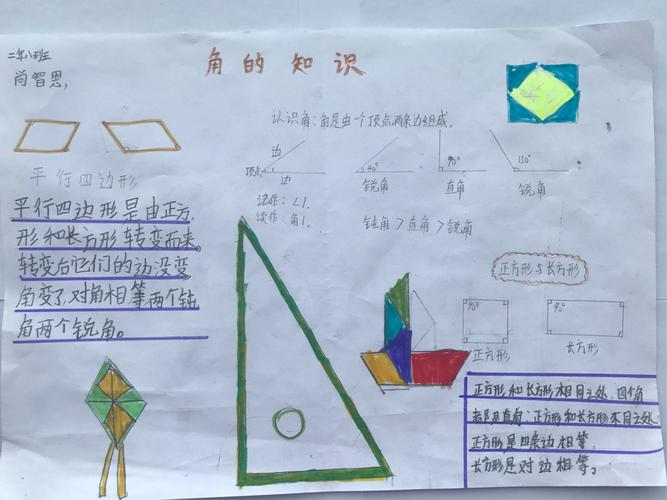 角的知识
二年八班
尚智恩,
认识角:角是由一个顶点两条边组成。
边
顶点
边
读作:∠1.
读作:角1.
40°
锐角
90°
直角
130°
锐角
钝角>直角>锐角
平行四边形
平行四边形是由正方
形和长方形转变而来。
转变后它们的边没变
角变了,对角相等两个钝
角两个锐角。
正方形与长方形
90°
正方形
90°
长方形
正方形和长方形相同之处,四个角
都是直角:正方形和长方形不同之处
正方形是四条边相等
长方形是对边相等。